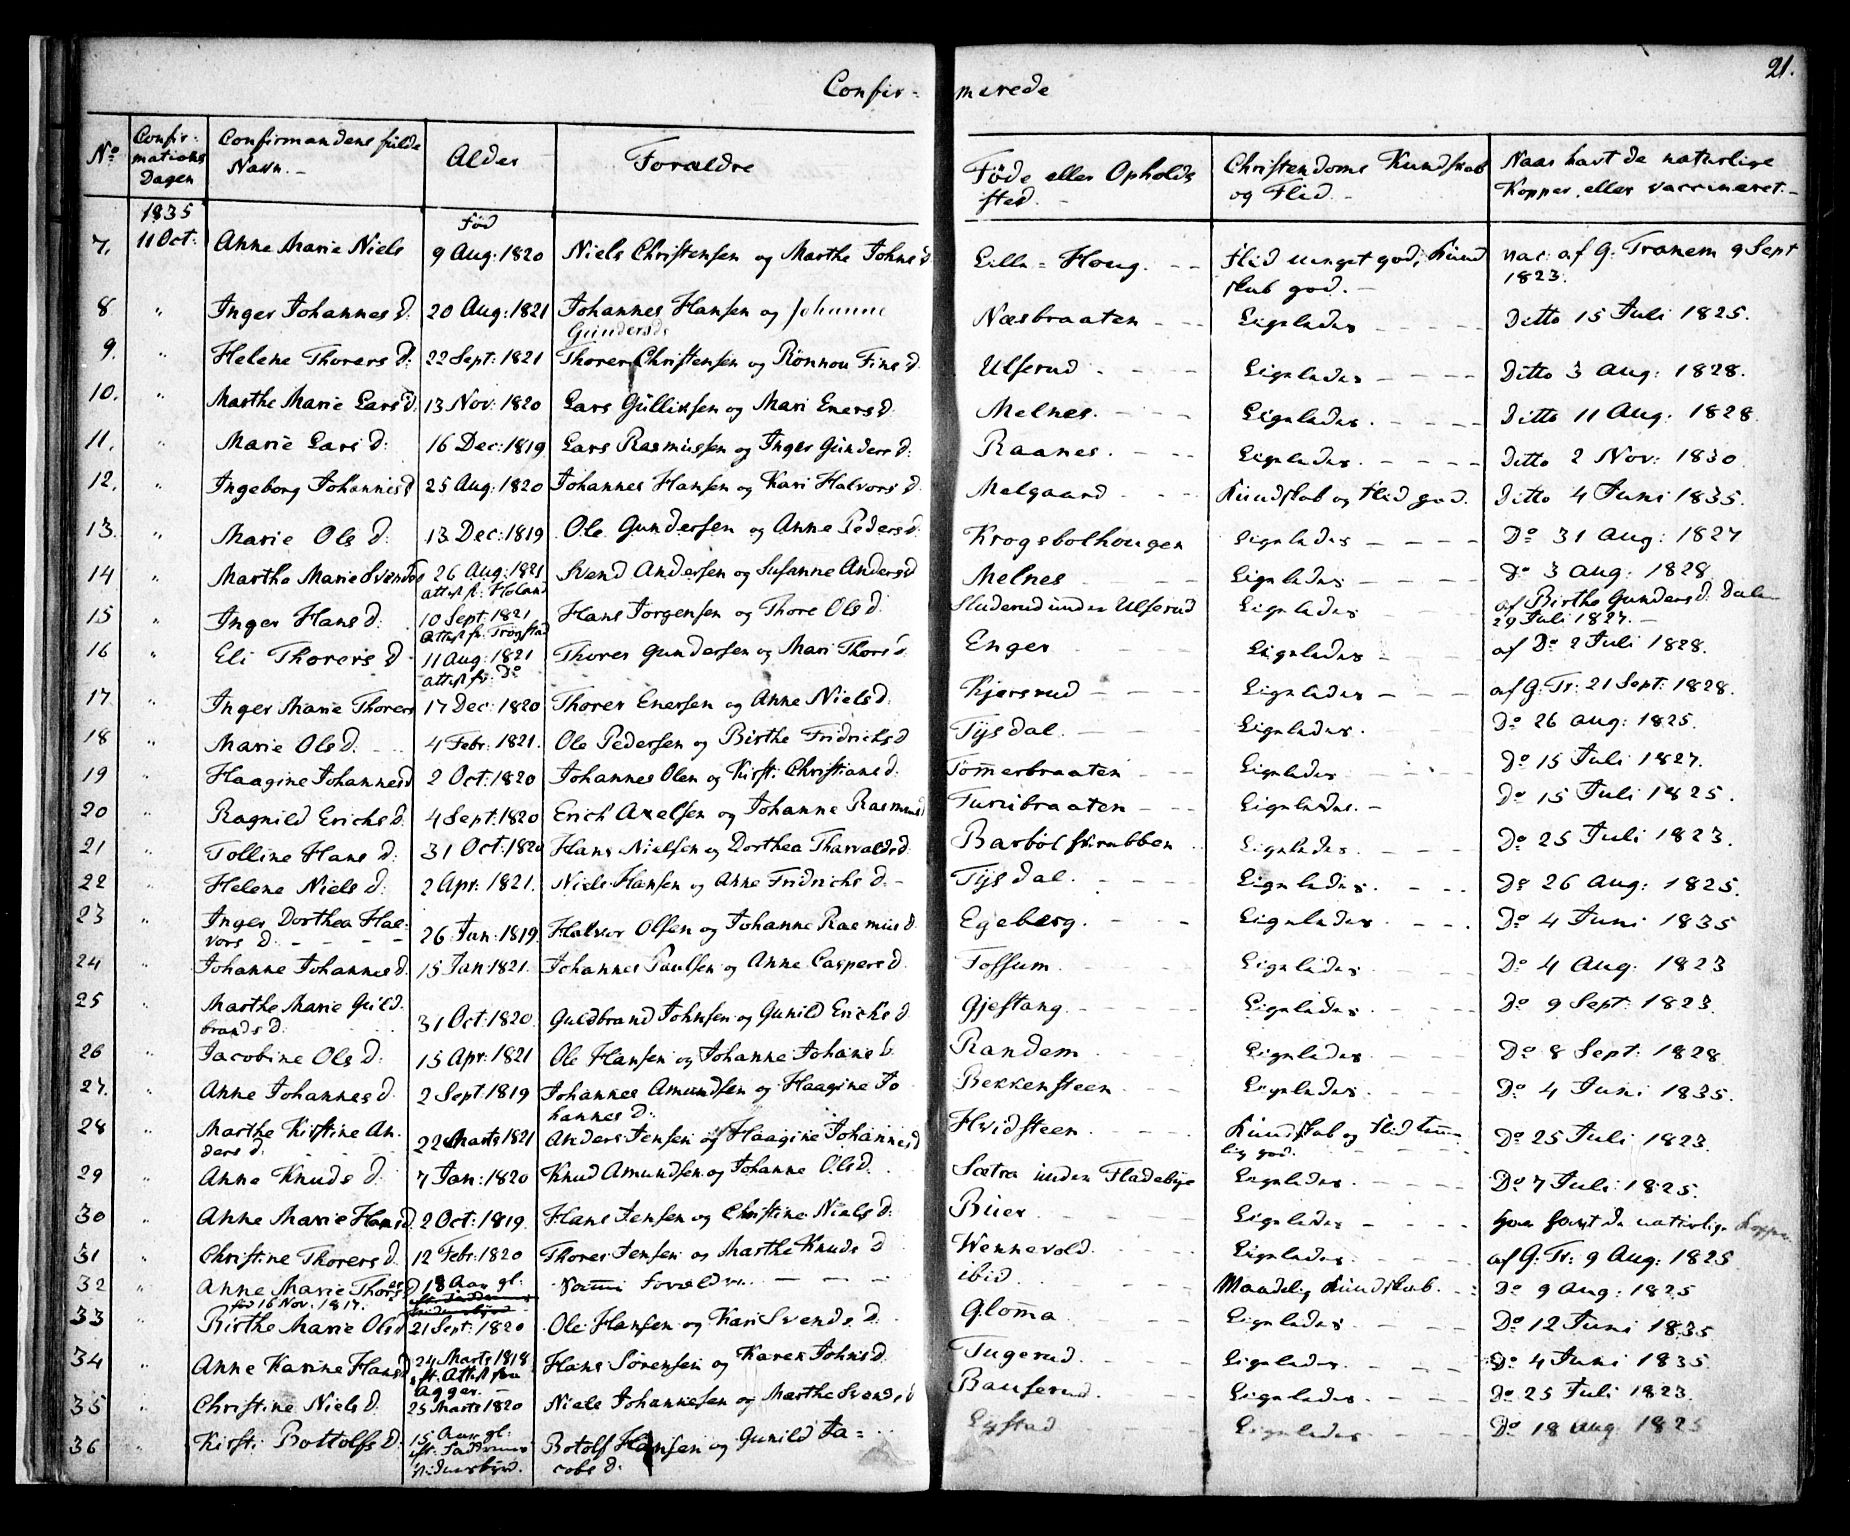 21.
Confir- merede
No Confirmations Dagen Confirmandens fulde Navn.- Alder Forældre Føde eller Opholds sted.- Christendoms Kundskab og Flid.- Naar havt de naturlige Kopper, eller vaccineret.-
1835 Fød
7. 11 Oct: Anne Marie Niels 9 Aug: 1820 Niels Christensen og Marthe Johns d Lille-Houg. Flid meget god, Kund vac: af G. Tranem 9 Sept
skab god.- 1823.
8 " Inger Johannes d: 20 Aug: 1821 Johannes Hansen og Johanne Næsbraaten Ligeledes Ditto 15 Juli 1825.
Gunders d:
9. " Helene Thorers d: 22 Sept: 1821 Thorer Christensen og Rønnou Fines d. Ulserud Ligeledes Ditto 3 Aug: 1828.
10. " Marthe Marie Lars d: 13 Nov: 1820 Lars Gulliksen og Mari Eners d. Melnes. Ligeledes. Ditto 11 Aug: 1828.
11. " Marie Lars d: 16 Dec: 1819 Lars Rasmussen og Inger Gunders d: Raanes. Ligeledes. Ditto 2 Nov: 1830
12. " Ingeborg Johannes d 25 Aug: 1820 Johannes Hansen og Kari Halvors d. Melgaard Kundskab og Flid god. Ditto 4 Juni 1835.
13. " Marie Ols d: 13 Dec: 1819 Ole Gundersen og Anne Peders d. Krogsbolhougen Ligeledes Do 31 Aug: 1827
14 " Marthe Marie Svends d 26 Aug: 1821 Svend Andersen og Susanne Anders d Melnes Ligeledes Do 3 Aug: 1828
attest fr. Høland
15 " Inger Hans d: 10 Sept: 1821 Hans Jørgensen og Thore Ols d. Sluderud under Ulserud Ligeledes af Birthe Gunders d. Dalen
attest fr. Trøgstad 29 Juli 1827.-
16 " Eli Thorers d 11 Aug: 1821 Thorer Gundersen og Mari Thors d. Enger Ligeledes af Do 2 Juli 1828.
attest fr: Do
17 " Inger Marie Thorers 17 Dec: 1820 Thorer Enersen og Anne Niels d. Kjersrud Ligeledes af G: Tr: 21 Sept: 1828.
18 " Marie Ols d. 4 Febr: 1821. Ole Pedersen og Birthe Fridrichs d Tysdal. Ligeledes. Do 26 Aug: 1825.
19 " Haagine Johannes d 2 Oct: 1820 Johannes Olen og Kirsti Christians d. Tom̄erbraaten Ligeledes Do 15 Juli 1827.
20 " Ragnild Erichs d. 4 Sept: 1820 Erich Axelsen og Johanne Rasmus d Turibraaten Ligeledes. Do 15 Juli 1825.
21 " Tolline Hans d: 31 Oct: 1820 Hans Nielsen og Dorthea Tharvalds d. Barbøl skrabben Ligeledes. Do 25 Juli 1823.
22 " Helene Niels d: 2 Apr: 1821. Niels Hansen og Anne Fridrichs d. Tysdal. Ligeledes. Do 26 Aug: 1825.
23 " Inger Dorthea Hal- 26 Jan: 1819. Halvor Olsen og Johanne Rasmus d. Egeberg. Ligeledes. Do 4 Juni 1835
vors d.
24 " Johanne Johannes d. 15 Jan: 1821. Johannes Paulsen og Anne Caspers d. Fossum. Ligeledes. Do 4 Aug: 1823
25 " Marthe Marie Guld- 31 Oct: 1820. Guldbrand Johnsen og Gunild Erichs d Gjestang. Ligeledes. Do 9 Sept: 1823.
brands d.
26 " Jacobine Ols d: 15 Apr: 1821 Ole Hansen og Johanne Johans d. Randem Ligeledes. Do 8 Sept: 1828
27. " Anne Johannes d. 2 Sept: 1819 Johannes Amundsen og Haagine Jo- Bekkensteen Ligeledes. Do 4 Juni 1835.
hannes d.
28 " Marthe Kirstine An- 22 Marts 1821 Anders Jensen og Haagine Johannes d Hvidsteen Kundskab og Flid tem̄e Do 25 Juli 1823.
ders d. lig god.
29 " Anne Knuds d: 7 Jan: 1820 Knud Amundsen og Johanne Ols d. Sætra under Fladebye Ligeledes. Do 7 Juli 1825.
30 " Anne Marie Hans d. 2 Oct: 1819. Hans Jensen og Christine Niels d: Buer Ligeledes har havt de naturlige Kopper.
31 " Christine Thorers d. 12 Febr: 1820 Thorer Jensen og Marthe Knuds d Wennevold. Ligeledes. af G: Tr: 9 Aug: 1825
32 " Anne Marie Thors d 18 Aar gl: Sam̄e Forældre. ibid Maadelig Kundskab. Do 9 Aug: 1825
fød 16 Nov. 1817.
33 " Birthe Marie Ols d 21 Sept: 1820 Ole Hansen og Kari Svends d. Glom̄a Ligeledes Do 12 Juni 1835
34 " Anne Karine Hans d 24 Marts 1818 Hans Sørensen og Karen Johns d. Tugerud. Ligeledes. Do 4 Juni 1835
eft. Attest fra
Agger.
35 " Christine Niels d. 25 Marts 1820 Niels Johannesen og Marthe Svends d Bauserud. Ligeledes. Do 25 Juli 1823.
36 " Kirsti Bottolfs d. 15 Aar gl: Botolf Hansen og Gunild Ja- Lystad Ligeledes. Do 18 Aug 1825
eft. Faddernes cobs d.
Vidnesbyrd.